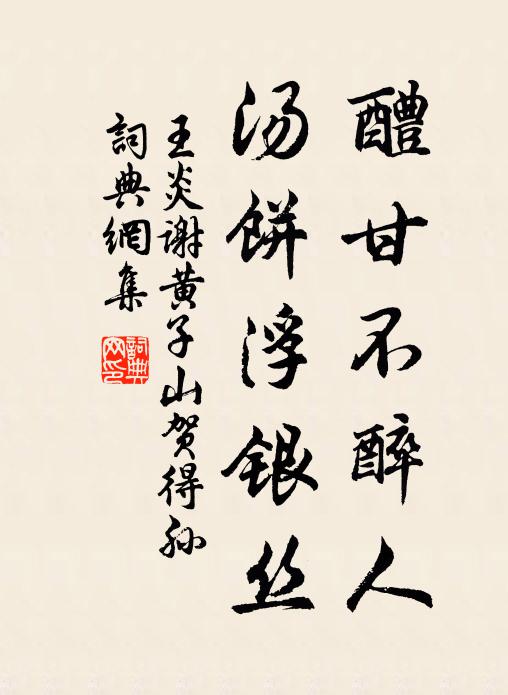 醴甘不醉人
汤饼浮银丝
王炎谢黄子山贺得孙
詞典網集
詞典
网印